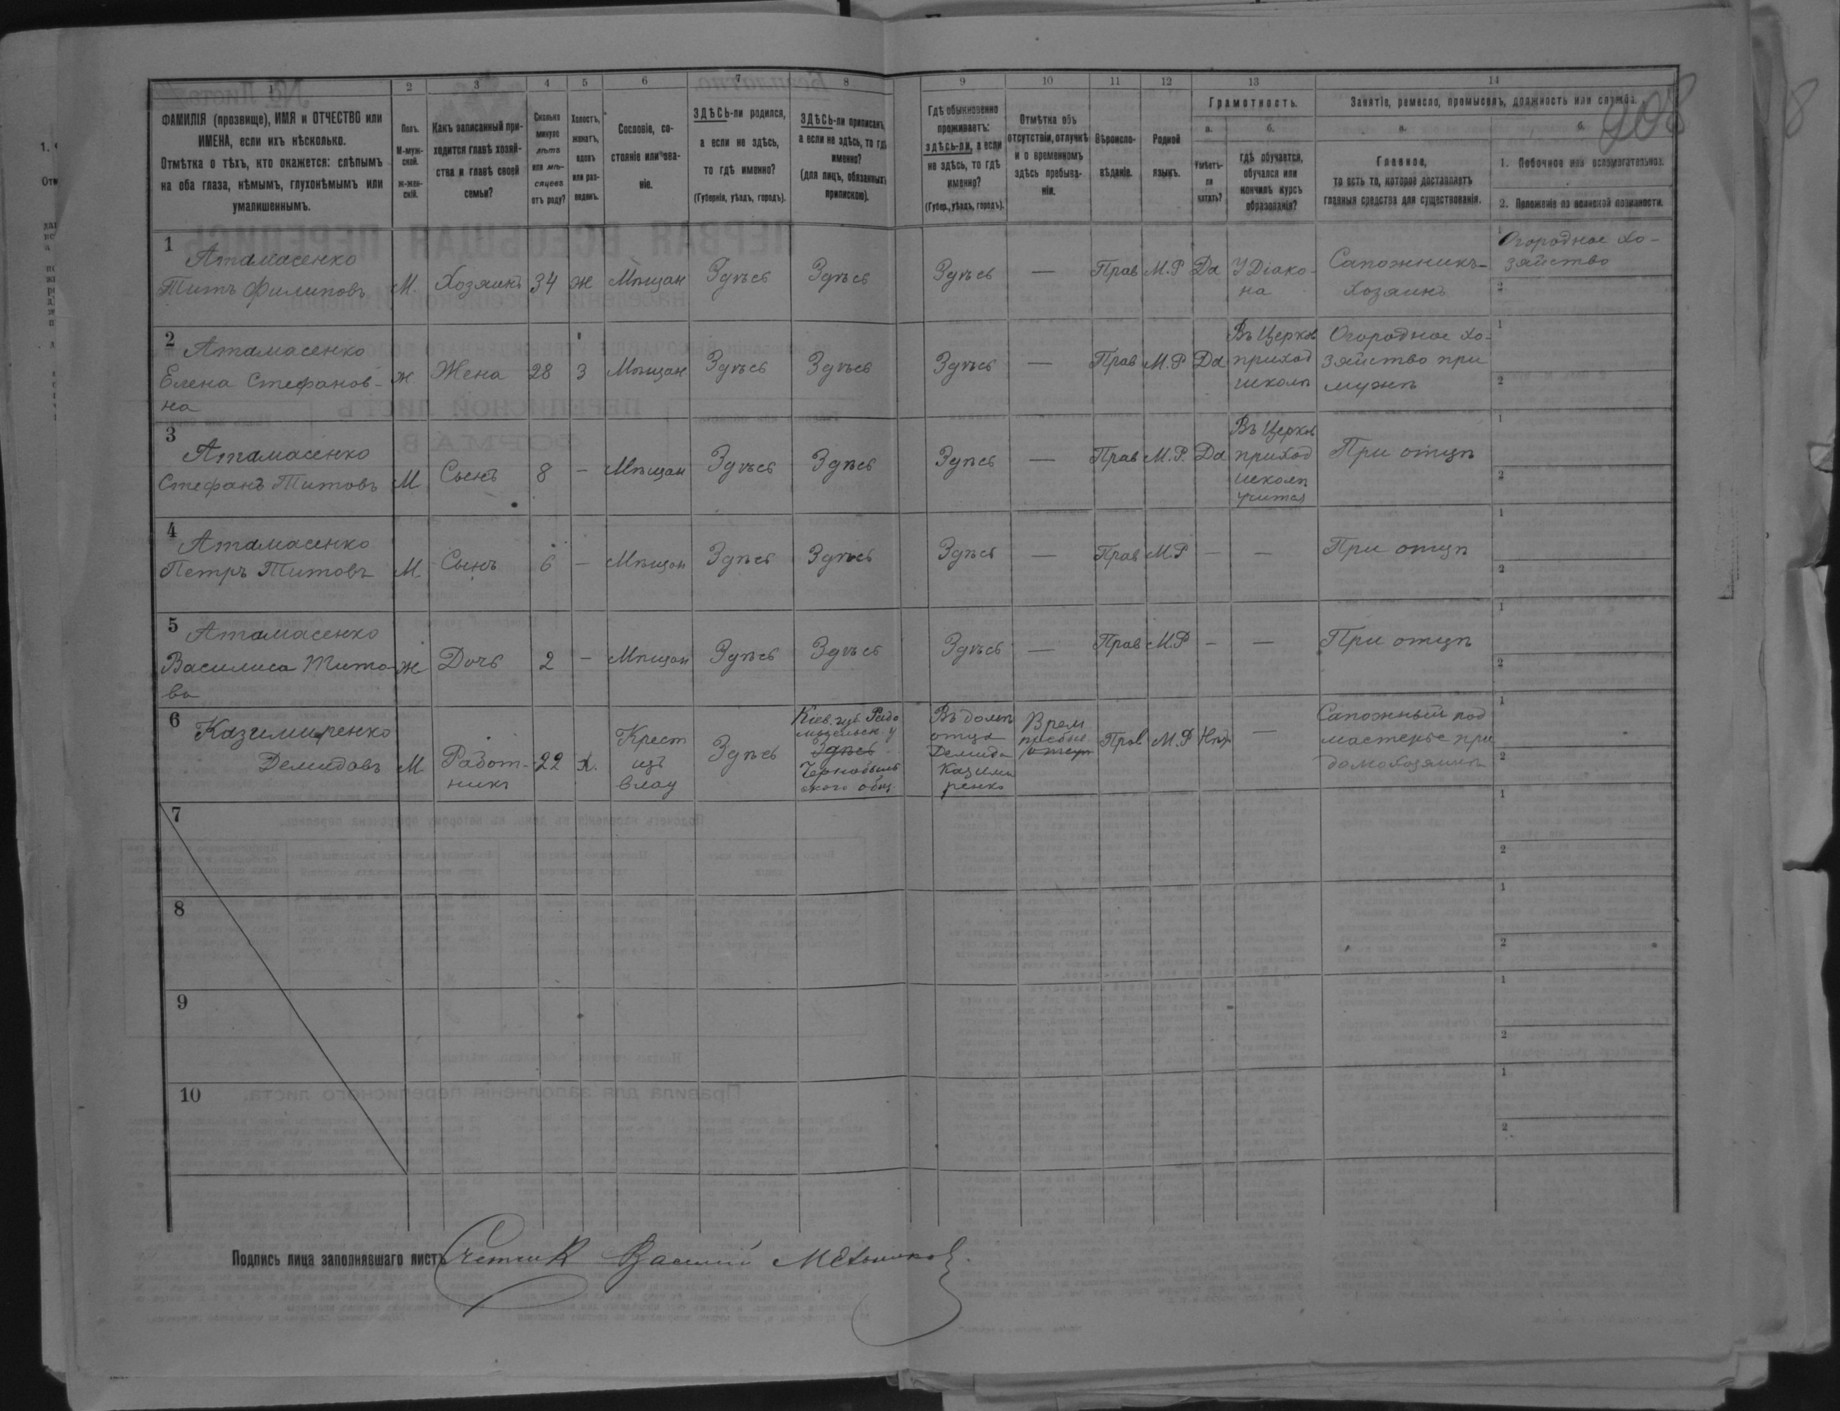 908
1
2
3
4
5
6
7
8
9
10
11
12
13
14
ФАМИЛІЯ (прозвище), ИМЯ и ОТЧЕСТВО или
ИМЕНА, если ихъ нѣсколько.
Отмѣтка о тѣхъ, кто окажется: слѣпымъ
на оба глаза, нѣмымъ, глухонѣмымъ или
умалишеннымъ.
Полъ.
М-муж-
ской.
ж-жен-
скій.
Какъ записанный при-
ходится главѣ хозяй-
ства и главѣ своей
семьи?
Сколько
минуло
лѣтъ
или мѣ-
сяцевъ
отъ роду?
Холостъ,
женатъ,
вдовъ
или раз-
веденъ.
Сословіе, со-
стояніе или зва-
ніе.
ЗДѢСЬ-ли родился,
а если не здѣсь,
то гдѣ именно?
(Губернія, уѣздъ, городъ).
ЗДѢСЬ-ли приписанъ,
а если не здѣсь, то гдѣ
именно?
(для лицъ, обязанныхъ
припискою).
Гдѣ обыкновенно
проживаетъ:
здѣсь-ли, а если
не здѣсь, то гдѣ
именно?
(Губер., уѣздъ, городъ).
Отмѣтка объ
отсутствіи, отлучкѣ
и о временномъ
здѣсь пребыва-
ніи.
Вѣроиспо-
вѣданіе.
Родной
языкъ.
Грамотность.
а.
б.
Умѣетъ-
ли
читать?
гдѣ обучается,
обучался или
кончилъ курсъ
образованія?
Занятіе, ремесло, промыселъ, должность или служба.
а.
б.
Главное,
то есть то, которое доставляетъ
главныя средства для существованія.
1. Побочное или вспомогательное.
2. Положеніе по воинской повинности.
1
Атамасенко
Титъ Филиповъ
М.
Хозяинъ
34
ж
Мѣщан
Здѣсь
Здѣсь
Здѣсь
—
Прав
М.Р
Да
У Діако-
на
Сапожникъ-
хозяинъ
1
Огородное хо-
зяйство
2
2
Атамасенко
Елена Стефанов-
на
ж
Жена
28
З
Мѣщан
Здѣсь
Здѣсь
Здѣсь
—
Прав
М.Р
Да
Въ Церков
приход
школѣ
Огородное хо-
зяйство при
мужѣ
1
2
3
Атамасенко
Стефанъ Титовъ
М
Сынъ
8
—
Мѣщан
Здѣсь
Здѣсь
Здѣсь
—
Прав
М.Р.
Да
Въ Церков
приход
школѣ
учится
При отцѣ
1
2
4
Атамасенко
Петръ Титовъ
М
Сынъ
6
—
Мѣщан
Здѣсь
Здѣсь
Здѣсь
—
Прав
М.Р
—
—
При отцѣ
1
2
5
Атамасенко
Василиса Тито-
ва
ж
Дочь
2
—
Мѣщан
Здѣсь
Здѣсь
Здѣсь
—
Прав
М.Р
—
—
При отцѣ
1
2
6
Казимиренко
Демидовъ
М
Работ-
никъ
22
х.
Крест
изъ
влад
Здѣсь
Кіев. губ. Радо
мысльск. у
Здѣсь
Чернобыль
ского общ.
Въ домѣ
отца
Демида
Казими
ренко
Врем
Прав
М.Р
Нѣт
—
Сапожный под
мастерье при
домохозяинѣ
1
2
7
1
2
8
1
2
9
1
2
10
1
2
Подпись лица заполнявшаго листъ
Счетчикъ Василій Мельников